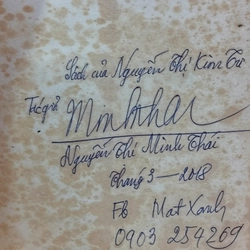 Sách của Nguyễn Thị Kim Cư
Tác giả Minhthai
Nguyễn Thị Minh Thái
Tháng 3 — 2018
Fb Mat Xanh
0903 254269